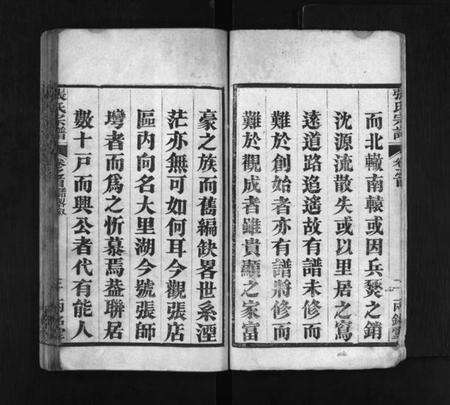 張氏宗譜
卷之首
而北轍南轅或因兵燹之銷
沈源流散失或以里居之寫
遠道路迢遙故有譜未修而
難於創始者亦有譜將修而
難於觀成者雖貴顯之家富
豪之族而舊編缺畧世系湮
茫亦無可如何耳今觀張店
區內向名大里湖今號張師
灣者而為之忻慕焉葢聯居
數十戶而興公者代有能人
張氏宗譜
卷之首